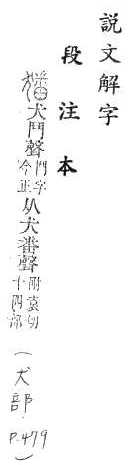 說文解字
段注本
犬鬥聲鬥字今正从犬番聲附袁切十四部（犬部.P.479）